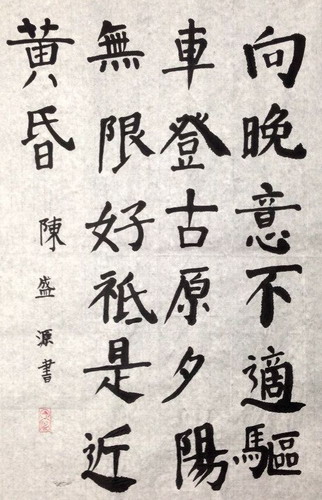 向晚意不適驅
車登古原夕陽
無限好祗是近
黃昏
陳盛源書